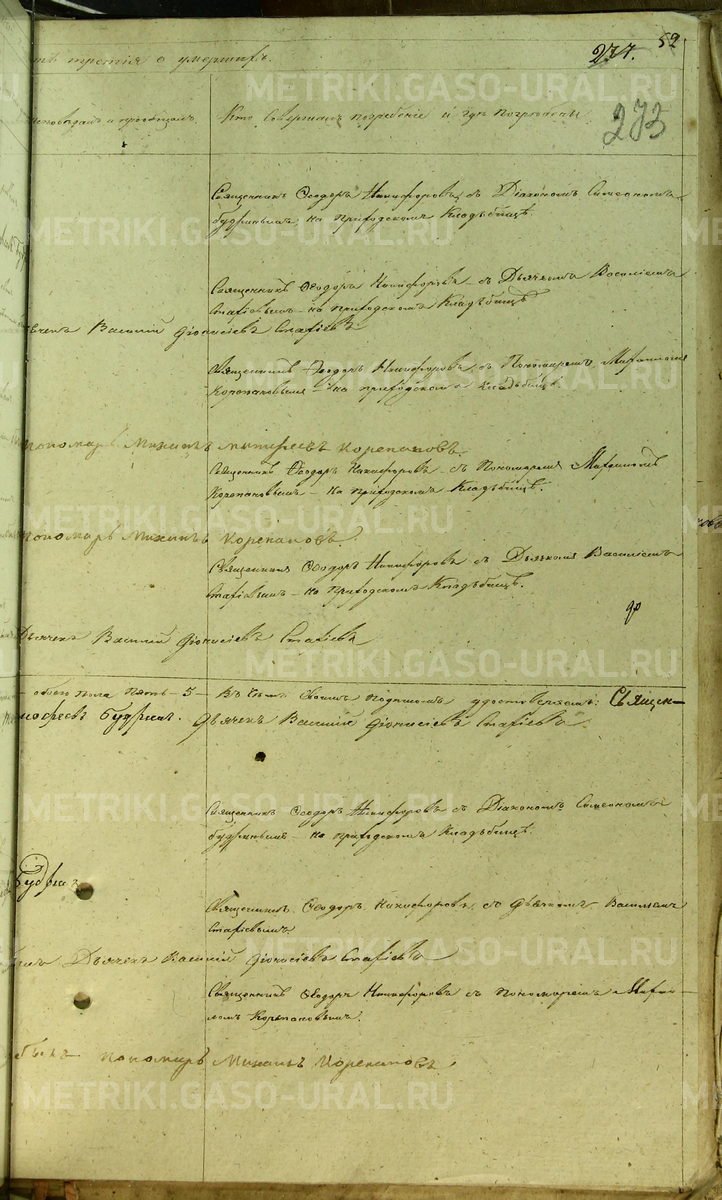 277. 52
ть третія о умершихъ.
273
Кто совершалъ погребеніе и гдѣ погребены
Священникъ Ѳеодоръ Никифоровъ съ Діакономъ Симеономъ
будринымъ на приходскомъ Кладъбищѣ.
Священникъ Ѳеодоръ Никифоровъ съ Дьячкомъ Василіемъ
Стафіевымъ на приходскомъ Кладъбищѣ
Дьячекъ Василий Діонисіевъ Стафіевъ
Священникъ Ѳеодоръ Никифоровъ съ Пономаремъ
Корепановымъ на приходскомъ Кладъбищѣ
пономарь Михаилъ Корепановъ.
Священникъ Ѳеодоръ Никифоровъ съ Пономаремъ Михаиломъ
Корепановымъ на приходскомъ Кладъбищѣ.
пономарь Михаилъ Корепановъ.
Священникъ Ѳеодоръ Никифоровъ съ Дьячкомъ Василіемъ
Стафіевымъ на приходскомъ Кладъбищѣ.
Дьячекъ Василий Діонисіевъ Стафіевъ
обоего пола пять 5 Въ чемъ своимъ подписомъ удостоверяемъ: Священ-
Будринъ. Дьячекъ Василий Діонисіевъ Стафіевъ
Священникъ Ѳеодоръ Никифоровъ съ Діакономъ Симеономъ
будринымъ на приходскомъ Кладъбищѣ.
Будрин
Священникъ Ѳеодоръ Никифоровъ съ Дьячкомъ Василіемъ
Стафіевымъ
Дьячекъ Василий Діонисіевъ Стафіевъ
Священникъ Ѳеодоръ Никифоровъ съ Пономаремъ Михаи-
ломъ Корепановымъ.
былъ пономарь Михаилъ Корепановъ
METRIKI.GASO-URAL.RU